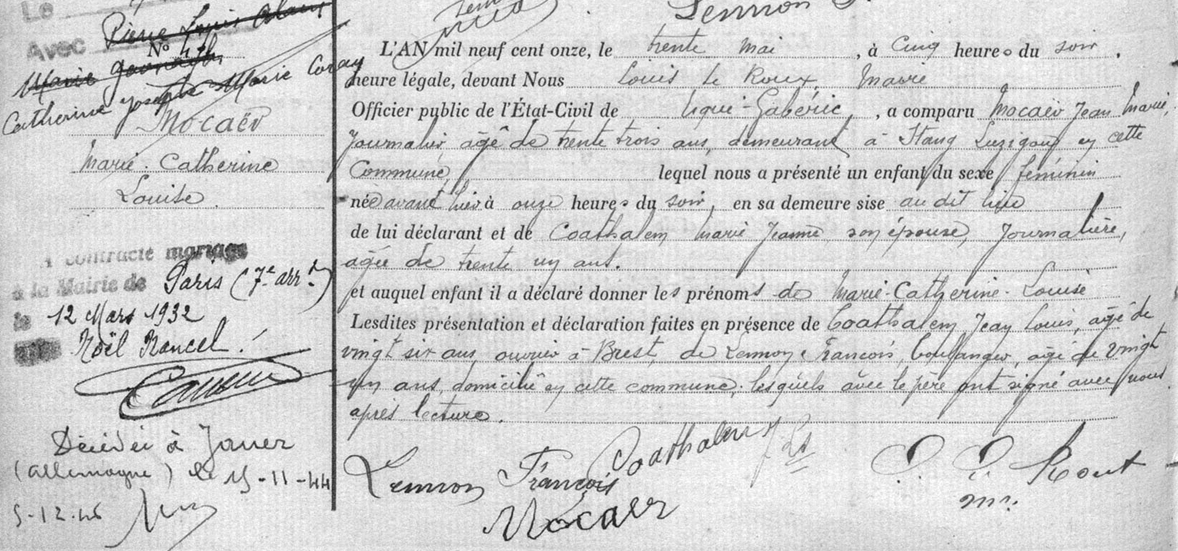 Le
Avec
Pierre Louis
Nº 47
Marie
Catherine Joseph Marie Coray
Mocaër
Marie-Catherine
Louise
A contracté mariage
à la Mairie de Paris (7e arrt)
le 12 Mars 1932
Noël Rancel.
Décédée à Jauer
(Allemagne) le 15-11-44
5-12-46
Lennon
L'AN mil neuf cent onze, le trente mai, à cinq heures du soir,
heure légale, devant Nous Louis Le Roux Maire
Officier public de l'État-Civil de Ergué-Gabéric, a comparu Mocaër Jean Marie,
journalier, âgé de trente trois ans, demeurant à Stang Luzigou en cette
Commune lequel nous a présenté un enfant du sexe féminin
née avant hier à onze heures du soir, en sa demeure sise au dit lieu
de lui déclarant et de Coathalem Marie Jeanne, son épouse, journalière,
âgée de trente un ans.
et auquel enfant il a déclaré donner les prénoms de Marie-Catherine-Louise
Lesdites présentation et déclaration faites en présence de Coathalem, Jean Louis, âgé de
vingt six ans, ouvrier à Brest, de Lennon François, boulanger, âgé de vingt
un ans, domicilié en cette commune, lesquels avec le père ont signé avec nous
après lecture.
Lennon François Coathalem Jls
Mocaer
L. L. Rout
mre